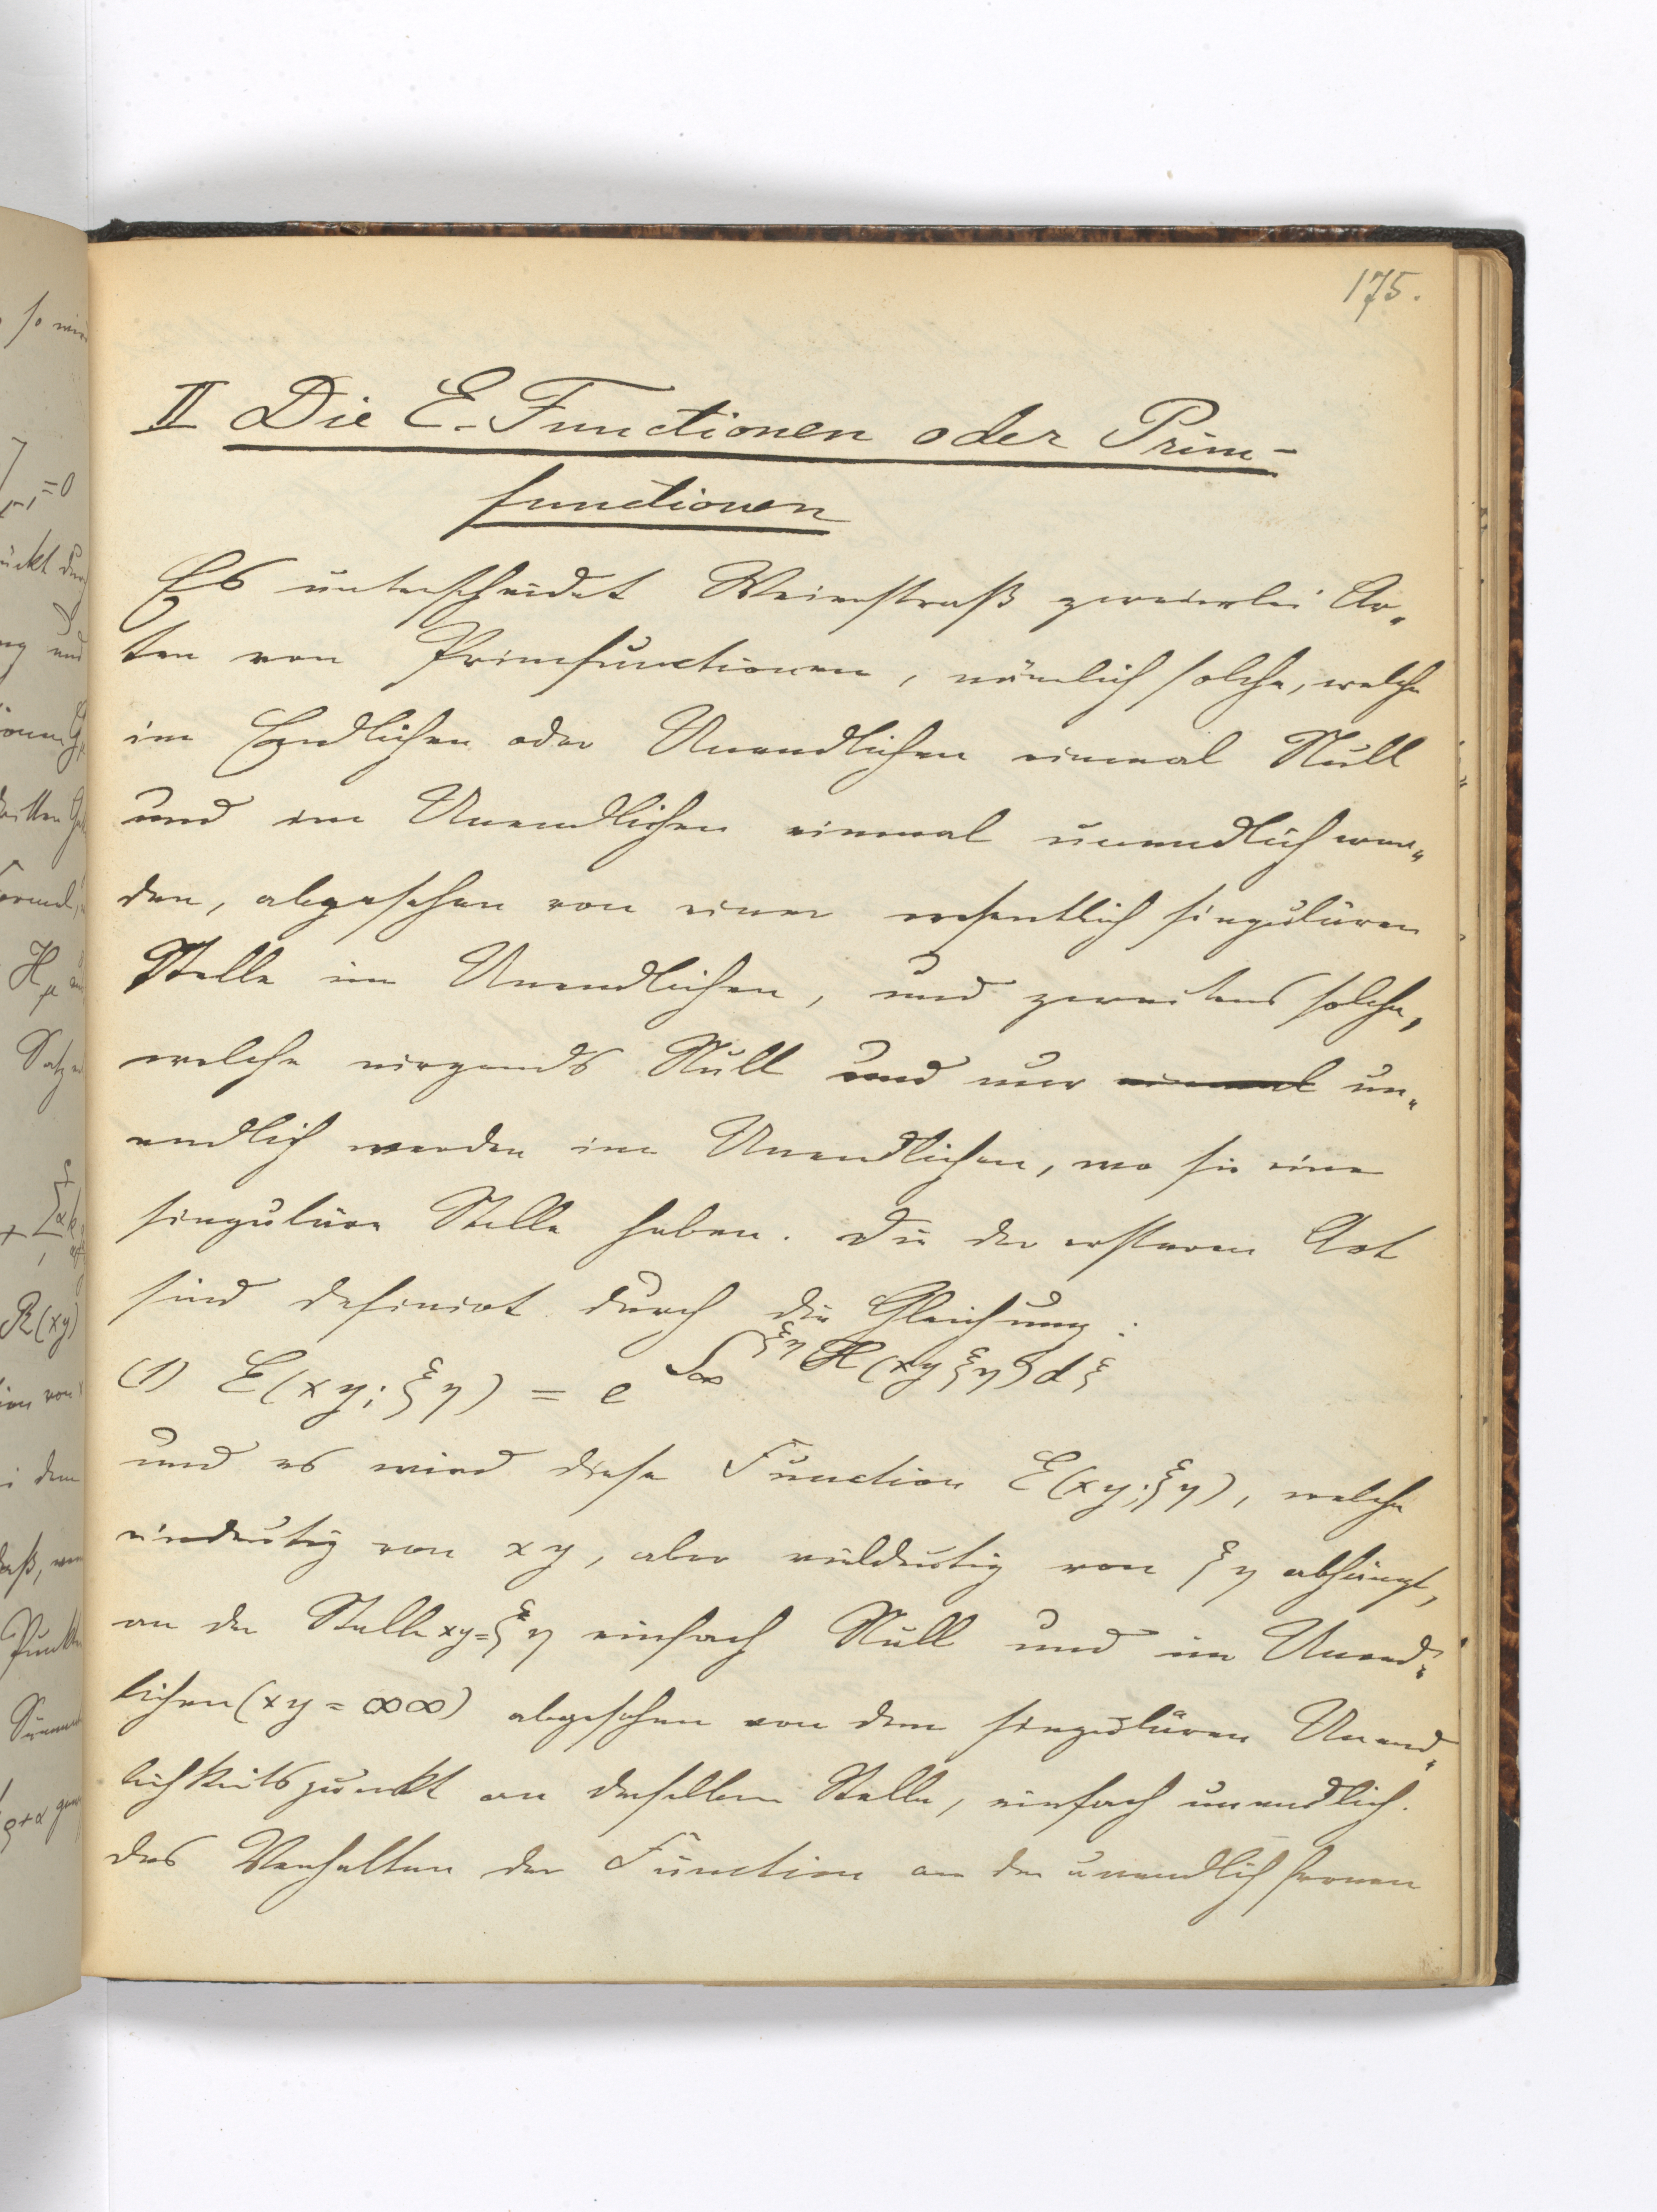 175.
II Die E-Functionen oder Prim-
functionen
Es unterscheidet Weierstraß zweierlei Ar-
ten von Primfunctionen, nämlich solche, welche
im Endlichen oder Unendlichen einmal Null
und im Unendlichen einmal unendlich wer-
den, abgesehen von einer wesentlich singulären
Stelle im Unendlichen, und zweitens solche,
welche nirgends Null und nur einmal un-
endlich werden im Unendlichen, wo sie eine
singuläre Stelle haben. Die der ersteren Art
sind definirt durch die Gleichung:
(1) E(xy; ξη) = e^{∫_∞^{ξη} H(xy ξη) dξ}
und es wird diese Function E(xy; ξη), welche
eindeutig von xy, aber vieldeutig von ξη abhängt,
an der Stelle xy = ξη einfach Null und im Unend-
lichen (xy = ∞∞) abgesehen von dem singulären Unend-
lichkeitspunkt an derselben Stelle, einfach unendlich.
Das Verhalten der Function an der unendlich fernen